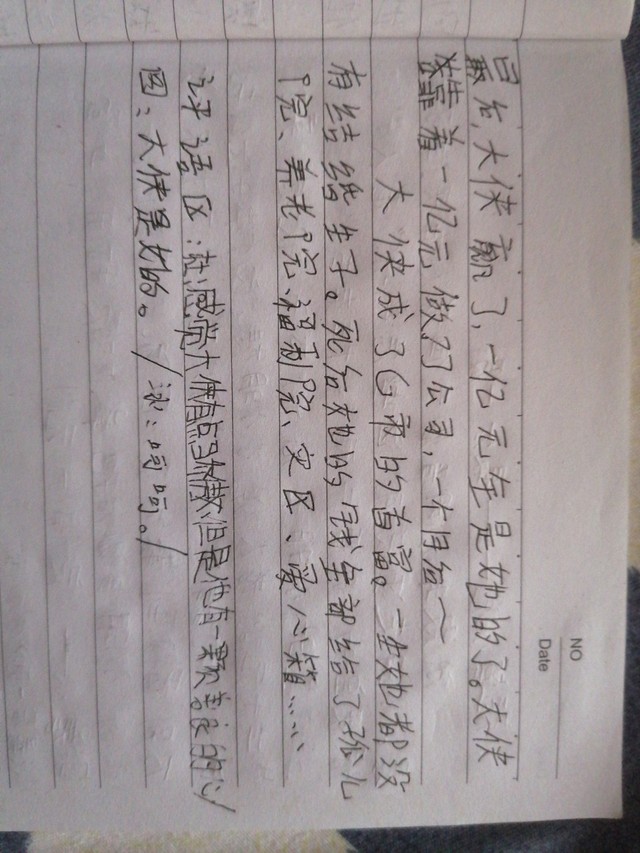 NO
Date
最后,大侠赢了,一亿元全是她的了。大侠
靠着一亿元做了公司,一个月后~
大侠成了G市的首富。一生她都没
有结婚生子。死后她的钱全部给了孤儿
院、养老院、福利院、灾区、爱心箱……
评语区:社:感觉大侠有点马褂散但是他有一颗善良的心/
因:大侠是女的。/冰:呵呵。/